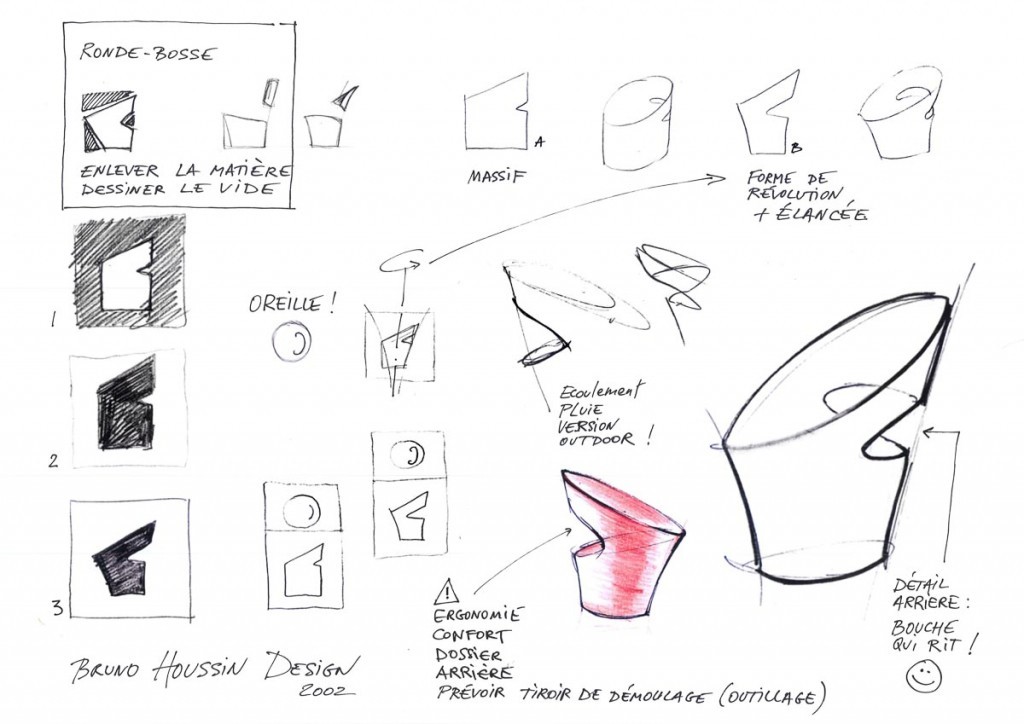 RONDE-BOSSE
ENLEVER LA MATIÈRE
DESSINER LE VIDE
A
MASSIF
B
FORME DE
RÉVOLUTION
+ ÉLANCÉE
1
OREILLE !
2
Ecoulement
PLUIE
VERSION
OUTDOOR !
3
!
ERGONOMIE
CONFORT
DOSSIER
ARRIÈRE
PRÉVOIR TIROIR DE DÉMOULAGE (OUTILLAGE)
DÉTAIL
ARRIERE :
BOUCHE
QUI RIT !
BRUNO HOUSSIN DESIGN
2002